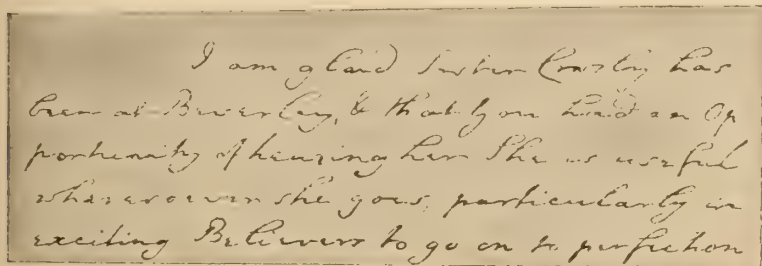 I am glad Sister Crosby has
been at Beverley, & that you had an Op
portunity of hearing her She is useful
wheresoever she goes, particularly in
exciting Believers to go on to perfection